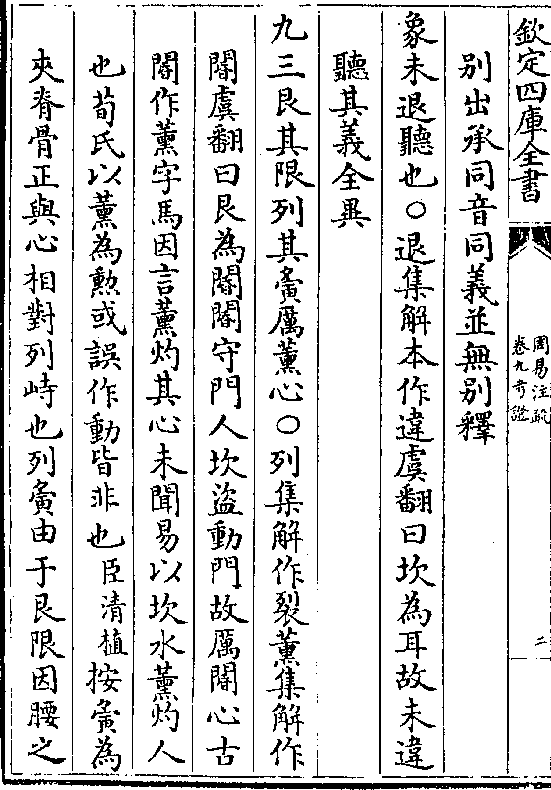 欽定四庫全書
周易注疏
卷九考證
二
別出承同音同義並無別釋
象未退聽也○退集解本作違虞翻曰坎為耳故未違
聽其義全異
九三艮其限列其夤厲薰心○列集解作裂薰集解作
閽虞翻曰艮為閽閽守門人坎盜動門故厲閽心古
閽作薰字馬因言薰灼其心未聞易以坎水薰灼人
也荀氏以薰為勲或誤作動皆非也臣清植按夤為
夾脊骨正與心相對列峙也列夤由于艮限因腰之